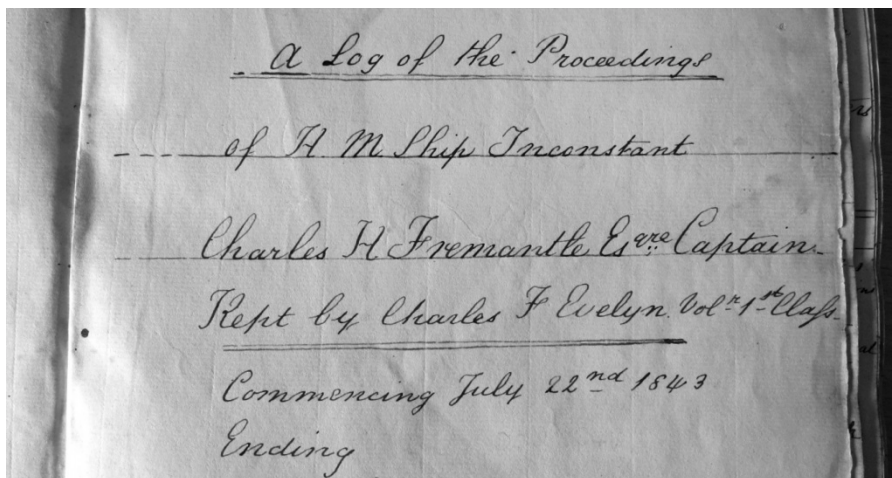 A Log of the Proceedings
of H. M. Ship Inconstant
Charles H Fremantle Esqre Captain.
Kept by Charles F Evelyn. Volr 1st Class.
Commencing July 22nd 1843
Ending